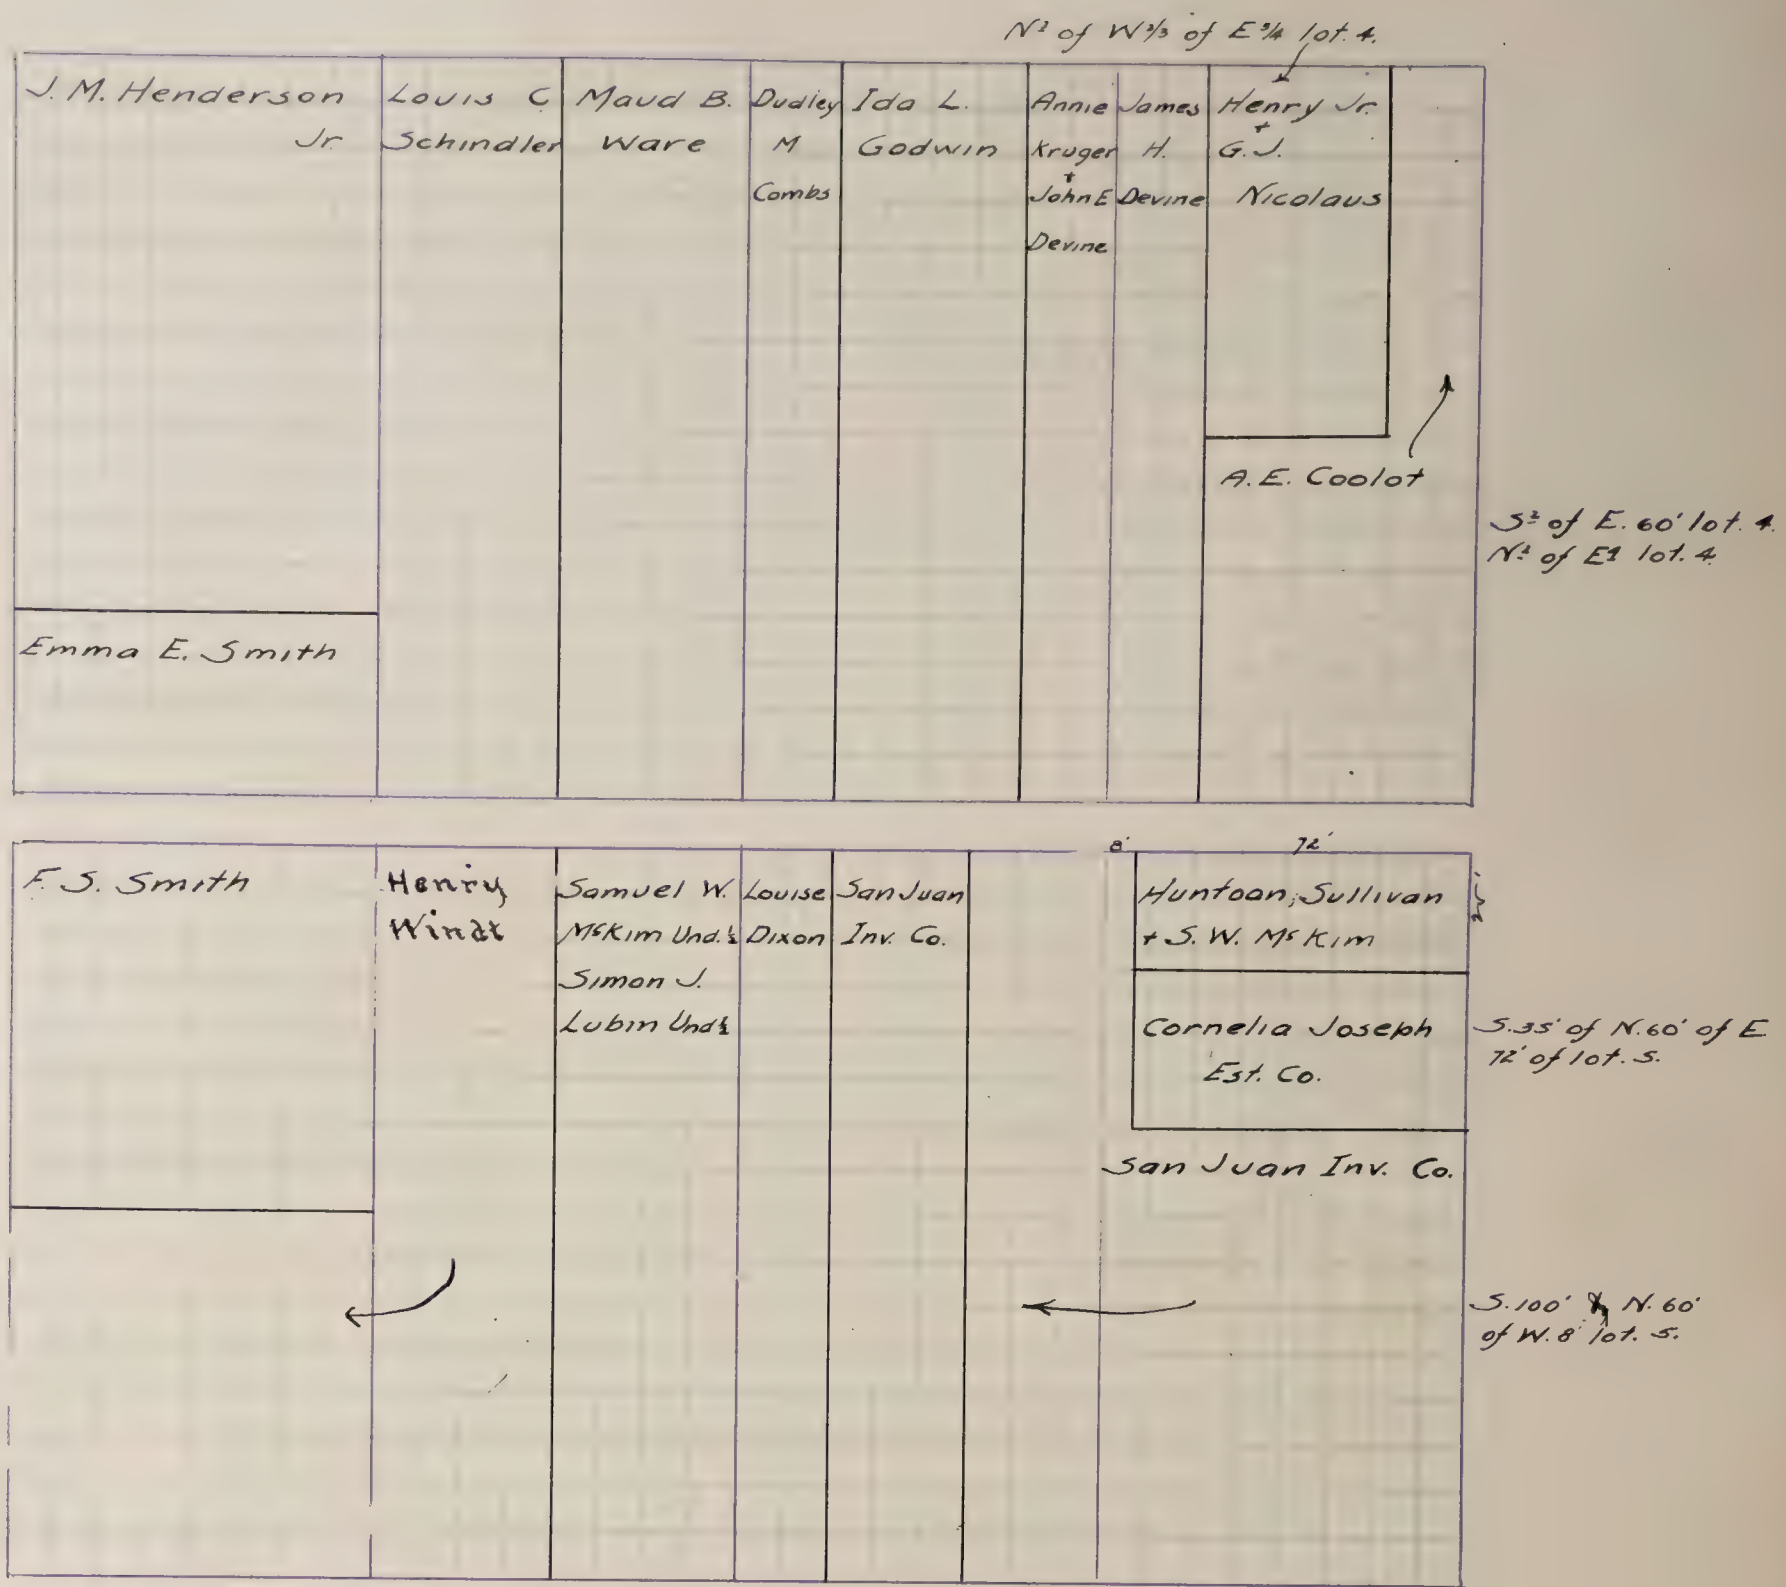 N½ of W⅔ of E¾ lot. 4.
J. M. Henderson
Jr
Louis C
Schindler
Maud B.
Ware
Dudley
M
Combs
Ida L.
Godwin
Annie
Kruger
+
John E
Devine
James
H.
Devine
Henry Jr.
+
G. J.
Nicolaus
A. E. Coolot
S½ of E. 60' lot. 4.
N½ of E¼ lot. 4
Emma E. Smith
F. S. Smith
Henry
Windt
Samuel W.
McKim Und. ½
Simon J.
Lubin Und ½
Louise
Dixon
San Juan
Inv. Co.
8'
72'
Huntoan, Sullivan
+ S. W. McKim
Cornelia Joseph
Est. Co.
S. 35' of N. 60' of E
72' of lot. 5.
San Juan Inv. Co.
S. 100' N. 60'
of W. 8' lot. 5.